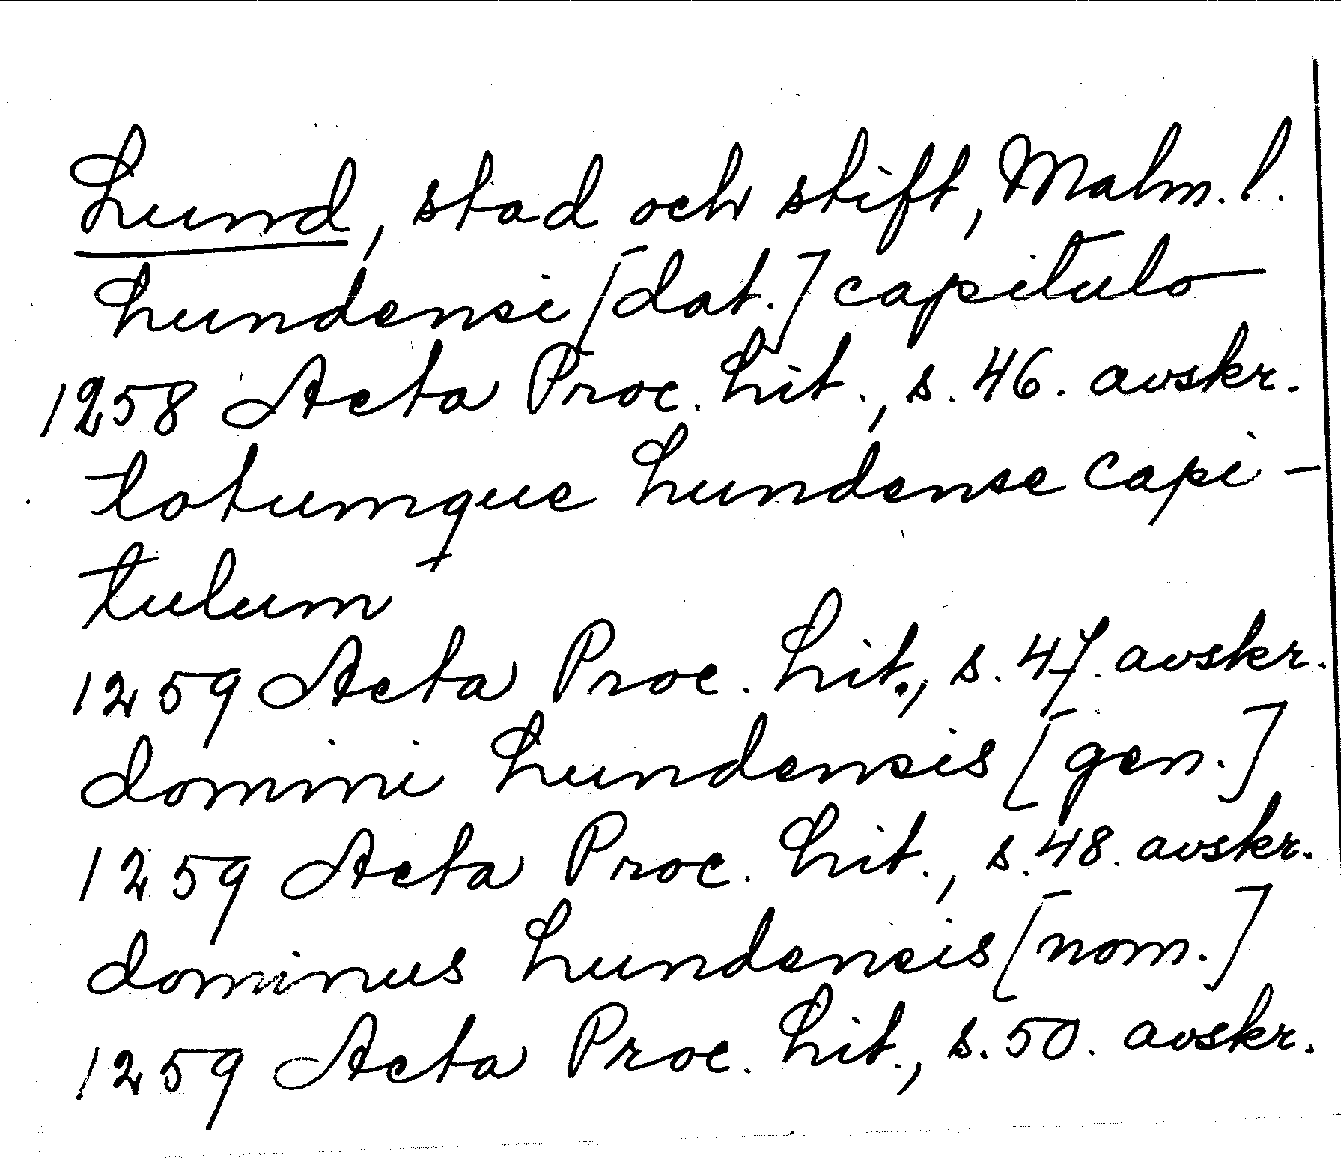 Lund, stad och stift, Malm. l.
Lundensi [dat.] capitulo
1258 Acta Proc. Lit., s. 46. avskr.
totumque Lundense capi-
tulum
1259 Acta Proc. Lit., s. 47. avskr.
domini Lundensis [gen.]
1259 Acta Proc. Lit., s. 48. avskr.
dominus Lundensis [nom.]
1259 Acta Proc. Lit., s. 50. avskr.